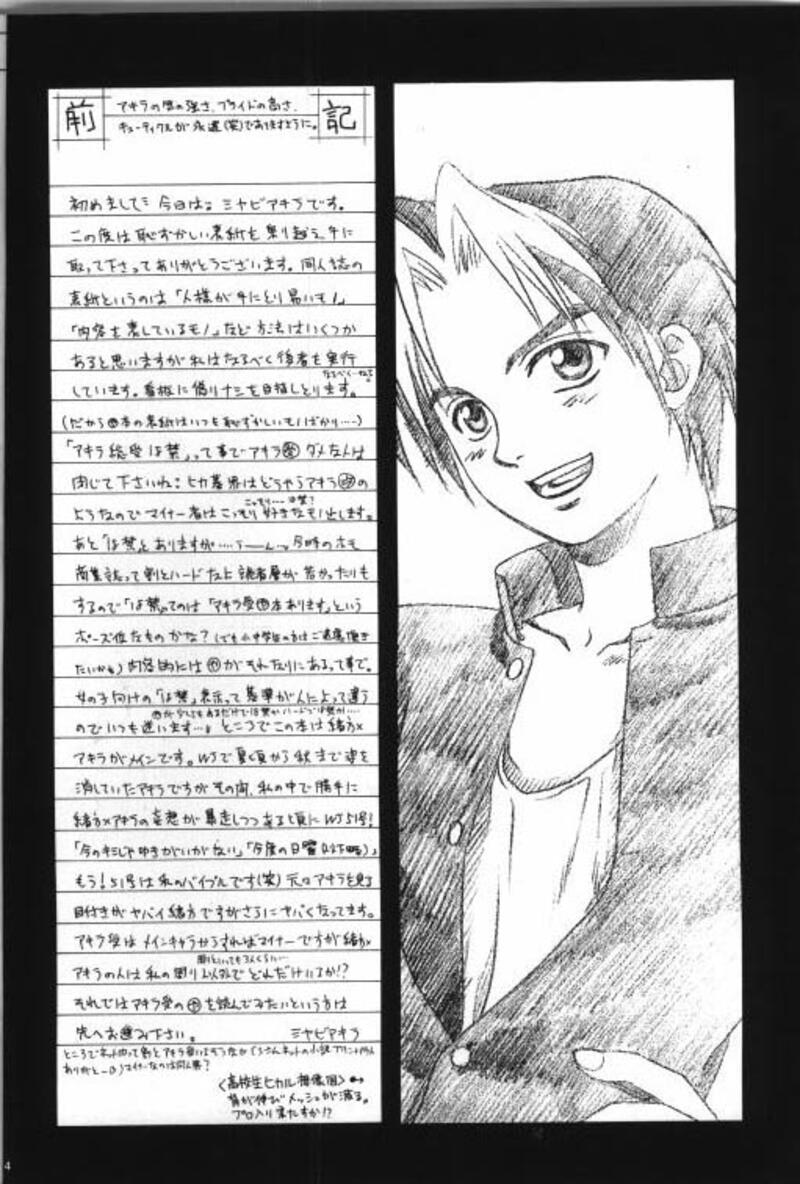 前記
アキラの気の強さ、プライドの高さ、
キューティクルが永遠(笑)でありますように。
初めまして 今日は。ミヤビアキラです。
この度は恥ずかしい表紙を乗り越え、手に
取って下さってありがとうございます。同人誌の
表紙というのは「人様が手にとり易いもの」
「内容を表しているもの」など方法はいくつか
あると思いますが私はなるべく後者を実行
なるべくーねる
しています。看板に偽りナシを目指しとります。
(だから本の表紙はいつも恥ずかしいものばかり‥‥)
「アキラ総受18禁」って事でアキラ受ダメな人は
閉じて下さいね。ヒカ碁界はどうやらアキラ攻の
こっそり‥‥18禁?
ようなのでマイナー者はこっそり好きなもの出します。
あと「18禁」とありますが‥‥うーん‥。今時のホモ
商業誌って割とハードだよ 読者層が若かったりも
するので「18禁」てのは「アキラ受本あります」という
ポーズ位なものかな?(でも小中学生の方はご遠慮頂き
たいかも) 内容的にはがそれなりにあるって事で。
女の子向けの「18禁」表示って基準が人によって違う
のでいつも迷います…。ところでこの本は緒方×
アキラがメインです。WJで夏頃から秋まで姿を
消していたアキラですがその間、私の中で勝手に
緒方×アキラの妄想が暴走しつつある頃にWJ51号!
「今のキミじゃゆきがいがない」「今度の日曜(以下略)」
もう!51号は私のバイブルです(笑) 元々アキラを見る
目付きがヤバイ緒方ですがさらにヤバくなってます。
アキラ受はメインキャラからすればマイナーですが緒方×
周りといっても3人くらい…
アキラの人は私の周り以外でどれだけいるか!?
それではアキラ受のを読んでみたいという方は
先へお進み下さい。 ミヤビアキラ
ところでネット
ありがとー
〈高校生ヒカル想像図〉→
背が伸びメッシュが減る。
プロ入り果たすか!?
4